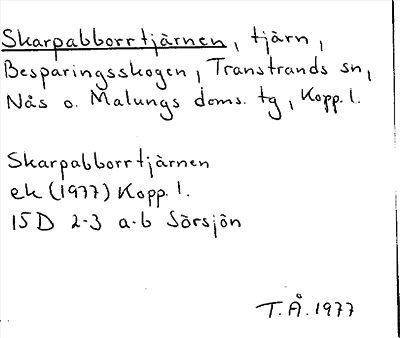 Skarpabborrtjärnen, tjärn,
Besparingsskogen, Transtrands sn,
Nås o. Malungs doms. tg, Kopp. l.
Skarpabborrtjärnen
ek (1977) Kopp. l.
15D 2-3 a-b Sörsjön
T.Å. 1977